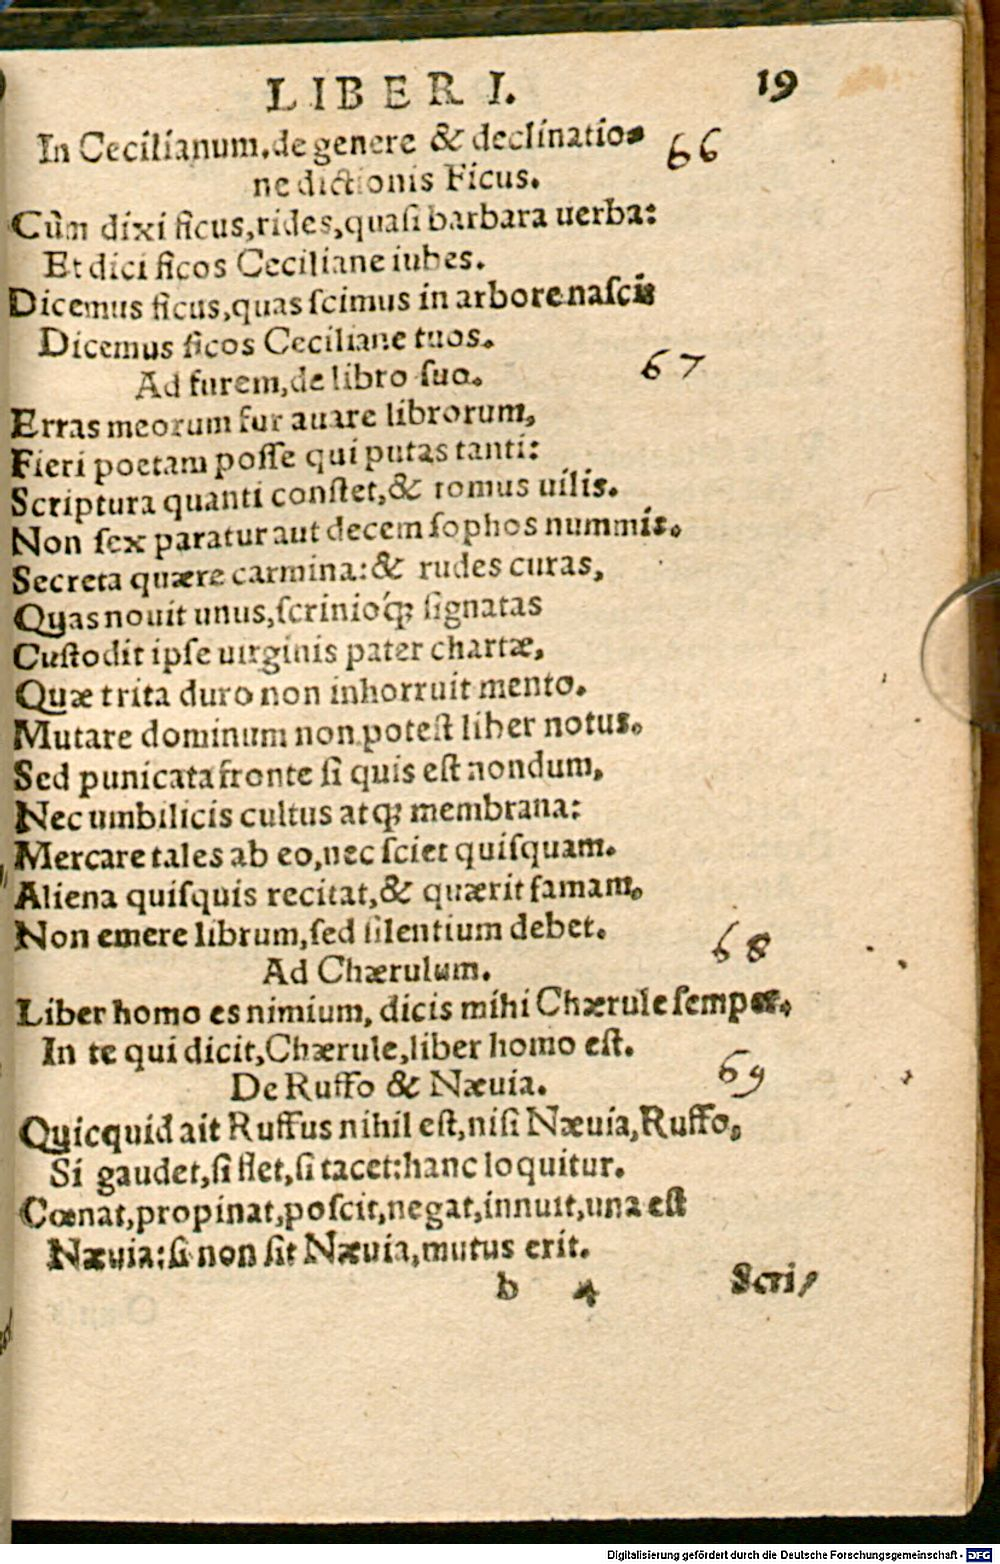 LIBER I. 19
In Cecilianum, de genere & declinatio- 66
ne dictionis Ficus.
Cũm dixi ficus, rides, quasi barbara uerba:
Et dici ficos Ceciliane iubes.
Dicemus ficus, quas scimus in arbore nasci:
Dicemus ficos Ceciliane tuos.
Ad furem, de libro suo. 67
Erras meorum fur auare librorum,
Fieri poetam posse qui putas tanti:
Scriptura quanti constet, & tomus uilis.
Non sex paratur aut decem sophos nummis.
Secreta quære carmina: & rudes curas,
Quas nouit unus, scrinioq́; signatas
Custodit ipse uirginis pater chartæ,
Quæ trita duro non inhorruit mento.
Mutare dominum non potest liber notus.
Sed punicata fronte si quis est nondum,
Nec umbilicis cultus atq; membrana:
Mercare tales ab eo, nec sciet quisquam.
Aliena quisquis recitat, & quærit famam,
Non emere librum, sed silentium debet.
Ad Chærulum. 68
Liber homo es nimium, dicis mihi Chærule semper.
In te qui dicit, Chærule, liber homo est.
De Ruffo & Næuia. 69
Quicquid ait Ruffus nihil est, nisi Næuia, Ruffo,
Si gaudet, si flet, si tacet: hanc loquitur.
Cœnat, propinat, poscit, negat, innuit, una est
Næuia: si non sit Næuia, mutus erit.
b 4 Scri/
Digitalisierung gefördert durch die Deutsche Forschungsgemeinschaft - DFG